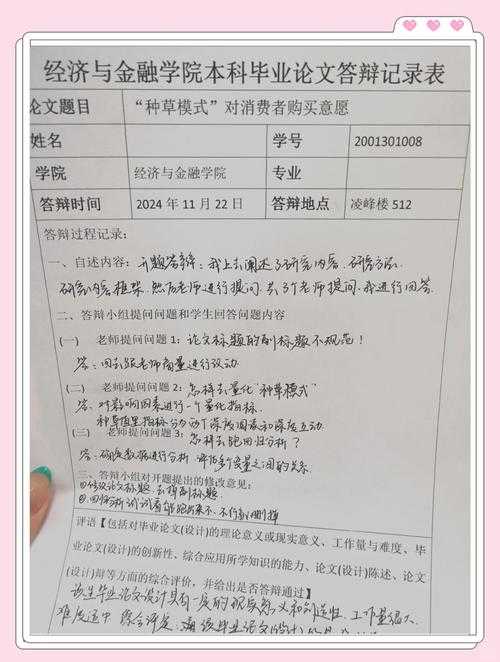 经济与金融学院本科毕业论文答辩记录表
论文题目 “种草模式”对消费者购买意愿
姓名 学号 2001301008
学院 经济与金融学院 专业
答辩时间 2024 年 11 月 22 日 答辩地点 凌峰楼 512
答辩过程记录：
一、自述内容：开题答辩：我上去阐述了研究内容、研究方法、
研究内容框架，然后老师进行提问，共3个老师提问，我进行回答.
二、答辩小组提问问题和学生回答问题内容
(一) 老师提问问题 1：论文标题的副标题不规范！
答：回去跟老师商量进行改动.
(二) 老师提问问题 2：怎样去量化“种草模式”
答：对影响因素进行一个量化指标.
种草值里指标分为两个深度因素和深度互动.
(三) 老师提问问题 3：怎样去跑回归分析？
答：研究数据进行分析 评估多个变量之间的关系.
三、答辩小组对开题提出的修改意见：
①修改论文标题，去掉副标题.
②回归分析试试看能跑出来不，不行就删掉
评语【包括对毕业论文(设计)的理论意义或现实意义、工作量与难度、毕
业论文(设计)的创新性、综合应用所学知识的能力、论文(设计)陈述、论文
(设计)辩等方面的综合评价，并给出是否答辩通过】
该生毕业论文设计具有一定的现实意义和创造性，工作量很大，
难度适中